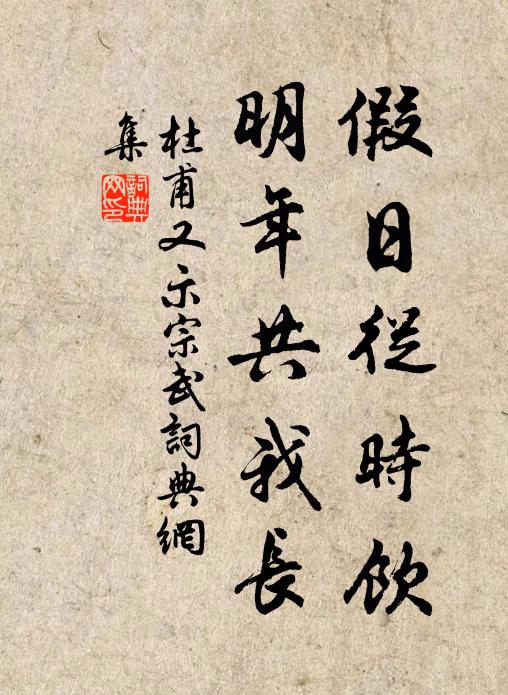 假日從時飲
明年共我長
杜甫又示宗武詞典網
集
詞典
网印